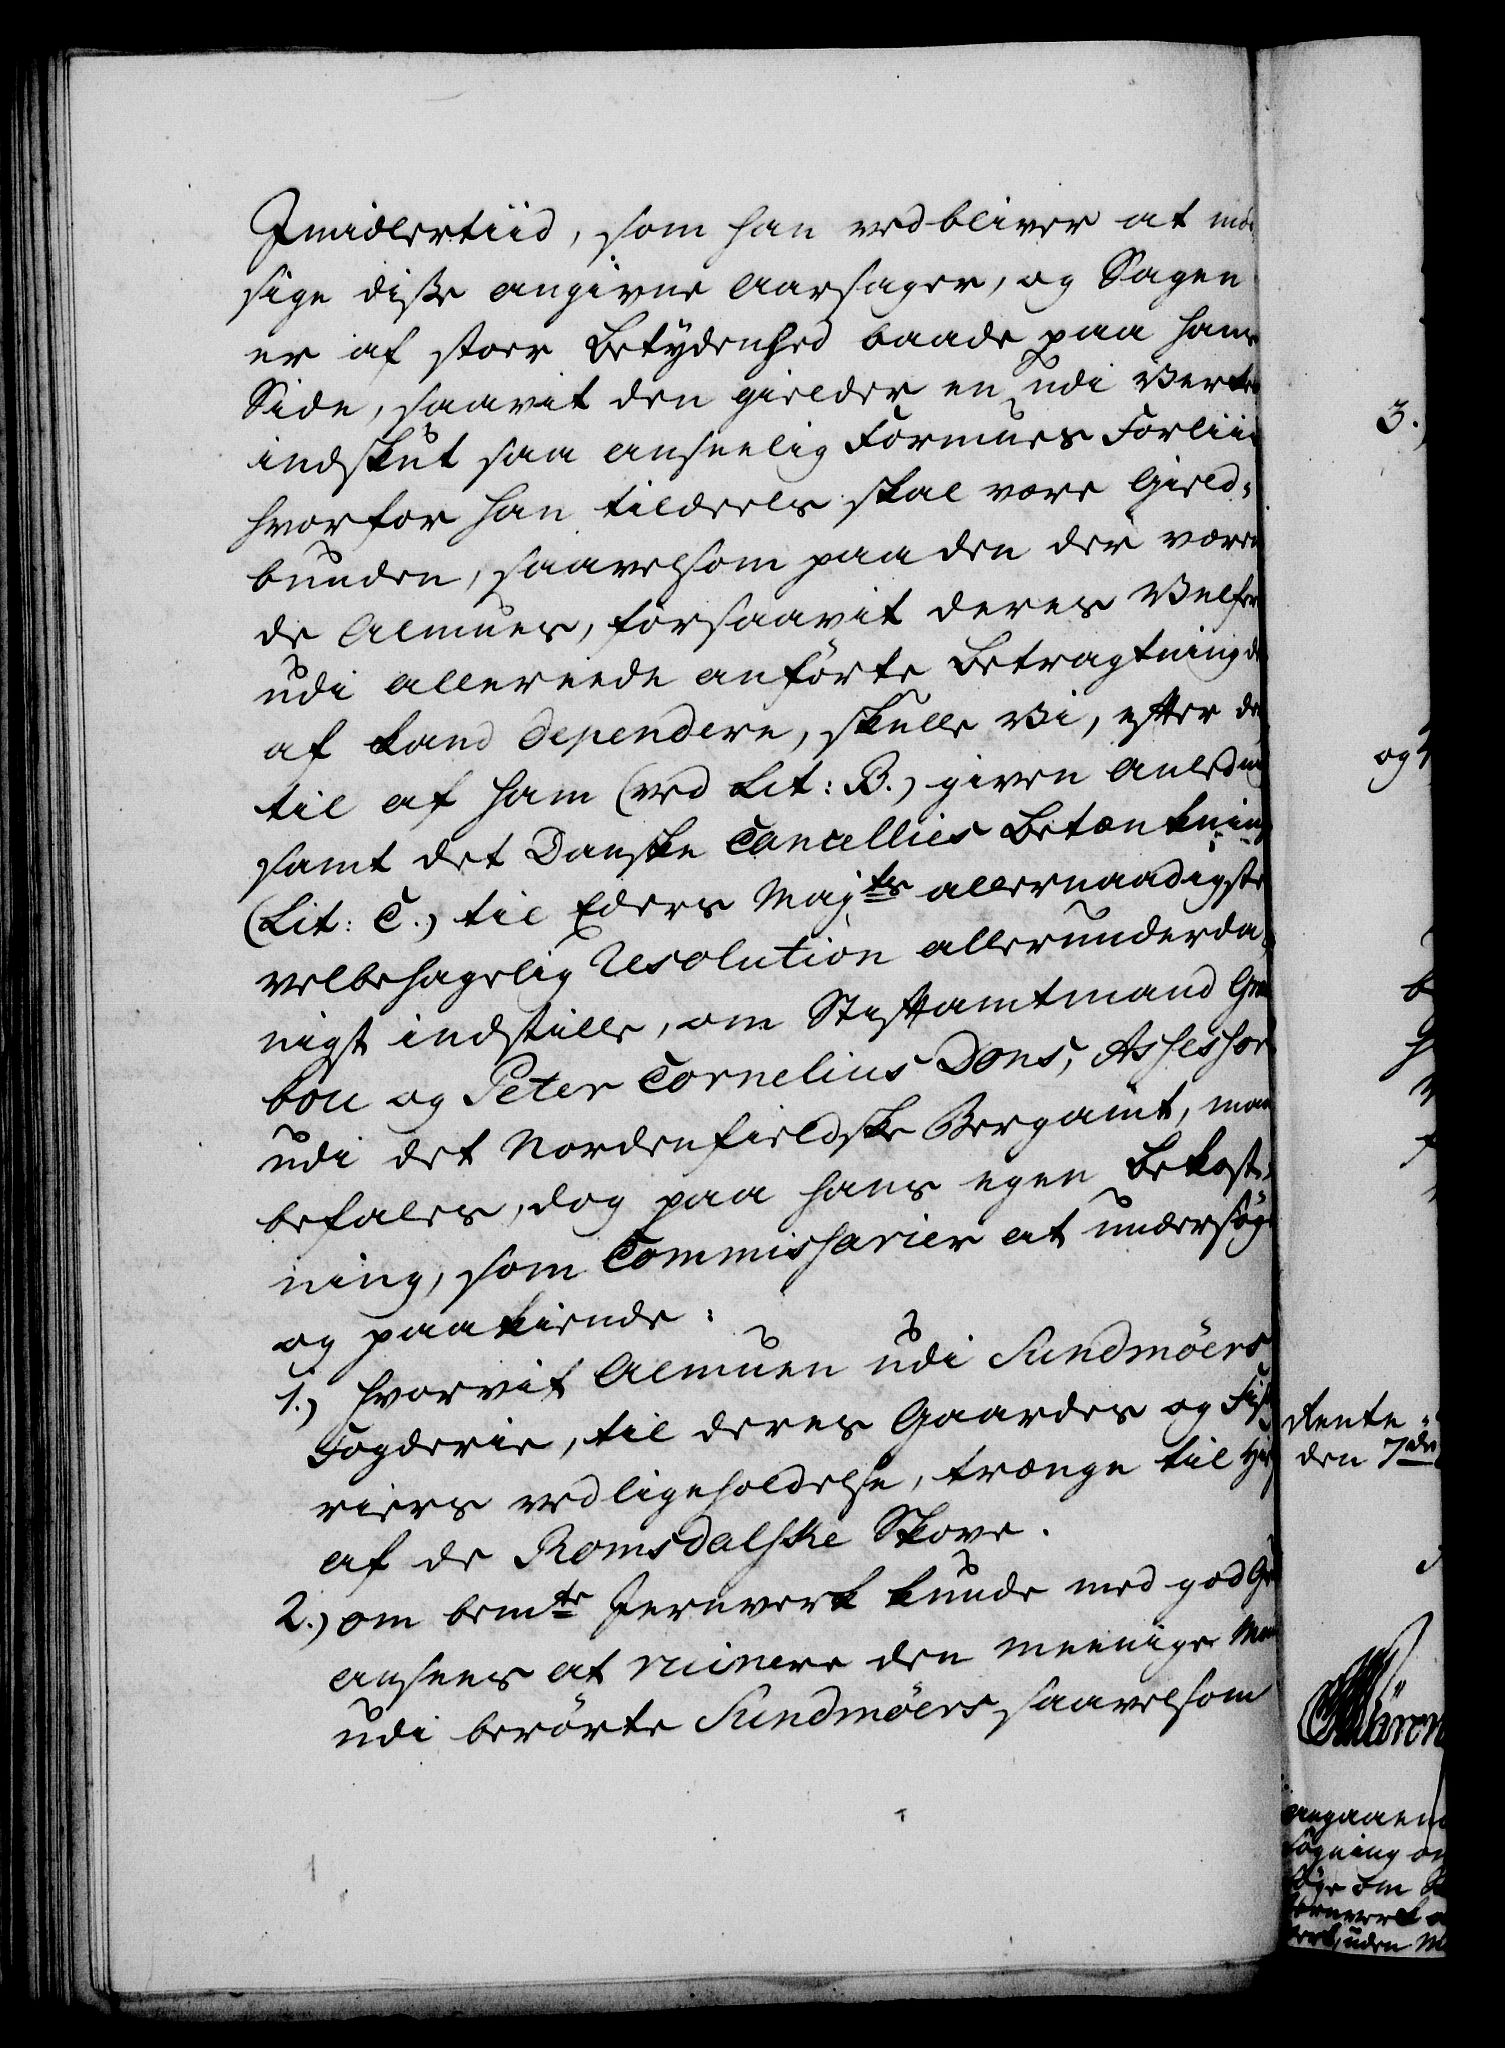 Imidlertiid, som han vedbliver at mod
sige disse angivne Aarsager, og Sagen
er af stoer Betydenhed baade paa hans
Side, saavit den gielder en udi Verket
indskut saa anseelig Formues Forliis
hvorfor han tildeels skal være Gield-
bunden, saavelsom paa den der væren
de Almues, forsaavit deres Velfær
udi allereede anförte Betragtning der
af kand dependere, skulle Vi, efter der
til af ham (ved Lit: B.) given Anledning
samt det Danske Cancellies Betænkning
(Lit: C.) til Eders Majts allernaadigste
velbehagelig Resolution allerunderda-
nigst indstille, om Stiftamtmand Gra
bou og Peter Cornelius Dons, Assessor
udi det Nordenfieldske Bergamt, maa
befales, dog paa hans egen Bekost-
ning, som Commissarier at undersöge
og paakiende:
1.) hvorvit Almuen udi Sundmöers
Fogderie, til deres Gaardes og Fiske
riers vedligeholdelse, trænge til Hielp
af de Romsdalske Skove.
2.) om bemte Jernverk kunde med god Gr
ansees at ruinere den meenige Mand
udi berörte Sundmöers, saavelsom
3.)
og
Rente-
den 7de
angaaend
sögning om
söge om
Jernverk
verk, uden